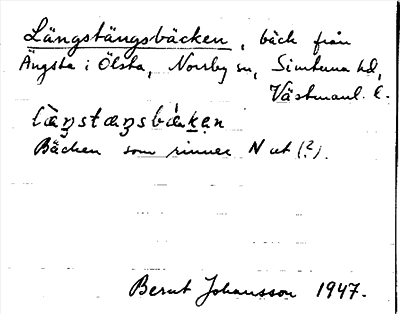 Längstängsbäcken, bäck från
Ängsta i Ölsta, Norrby sn, Simtuna hd,
Västmanl. l.
lä̀ŋstæŋsbä́kęn
Bäcken som rinner N ut (?).
Bernt Johansson 1947.